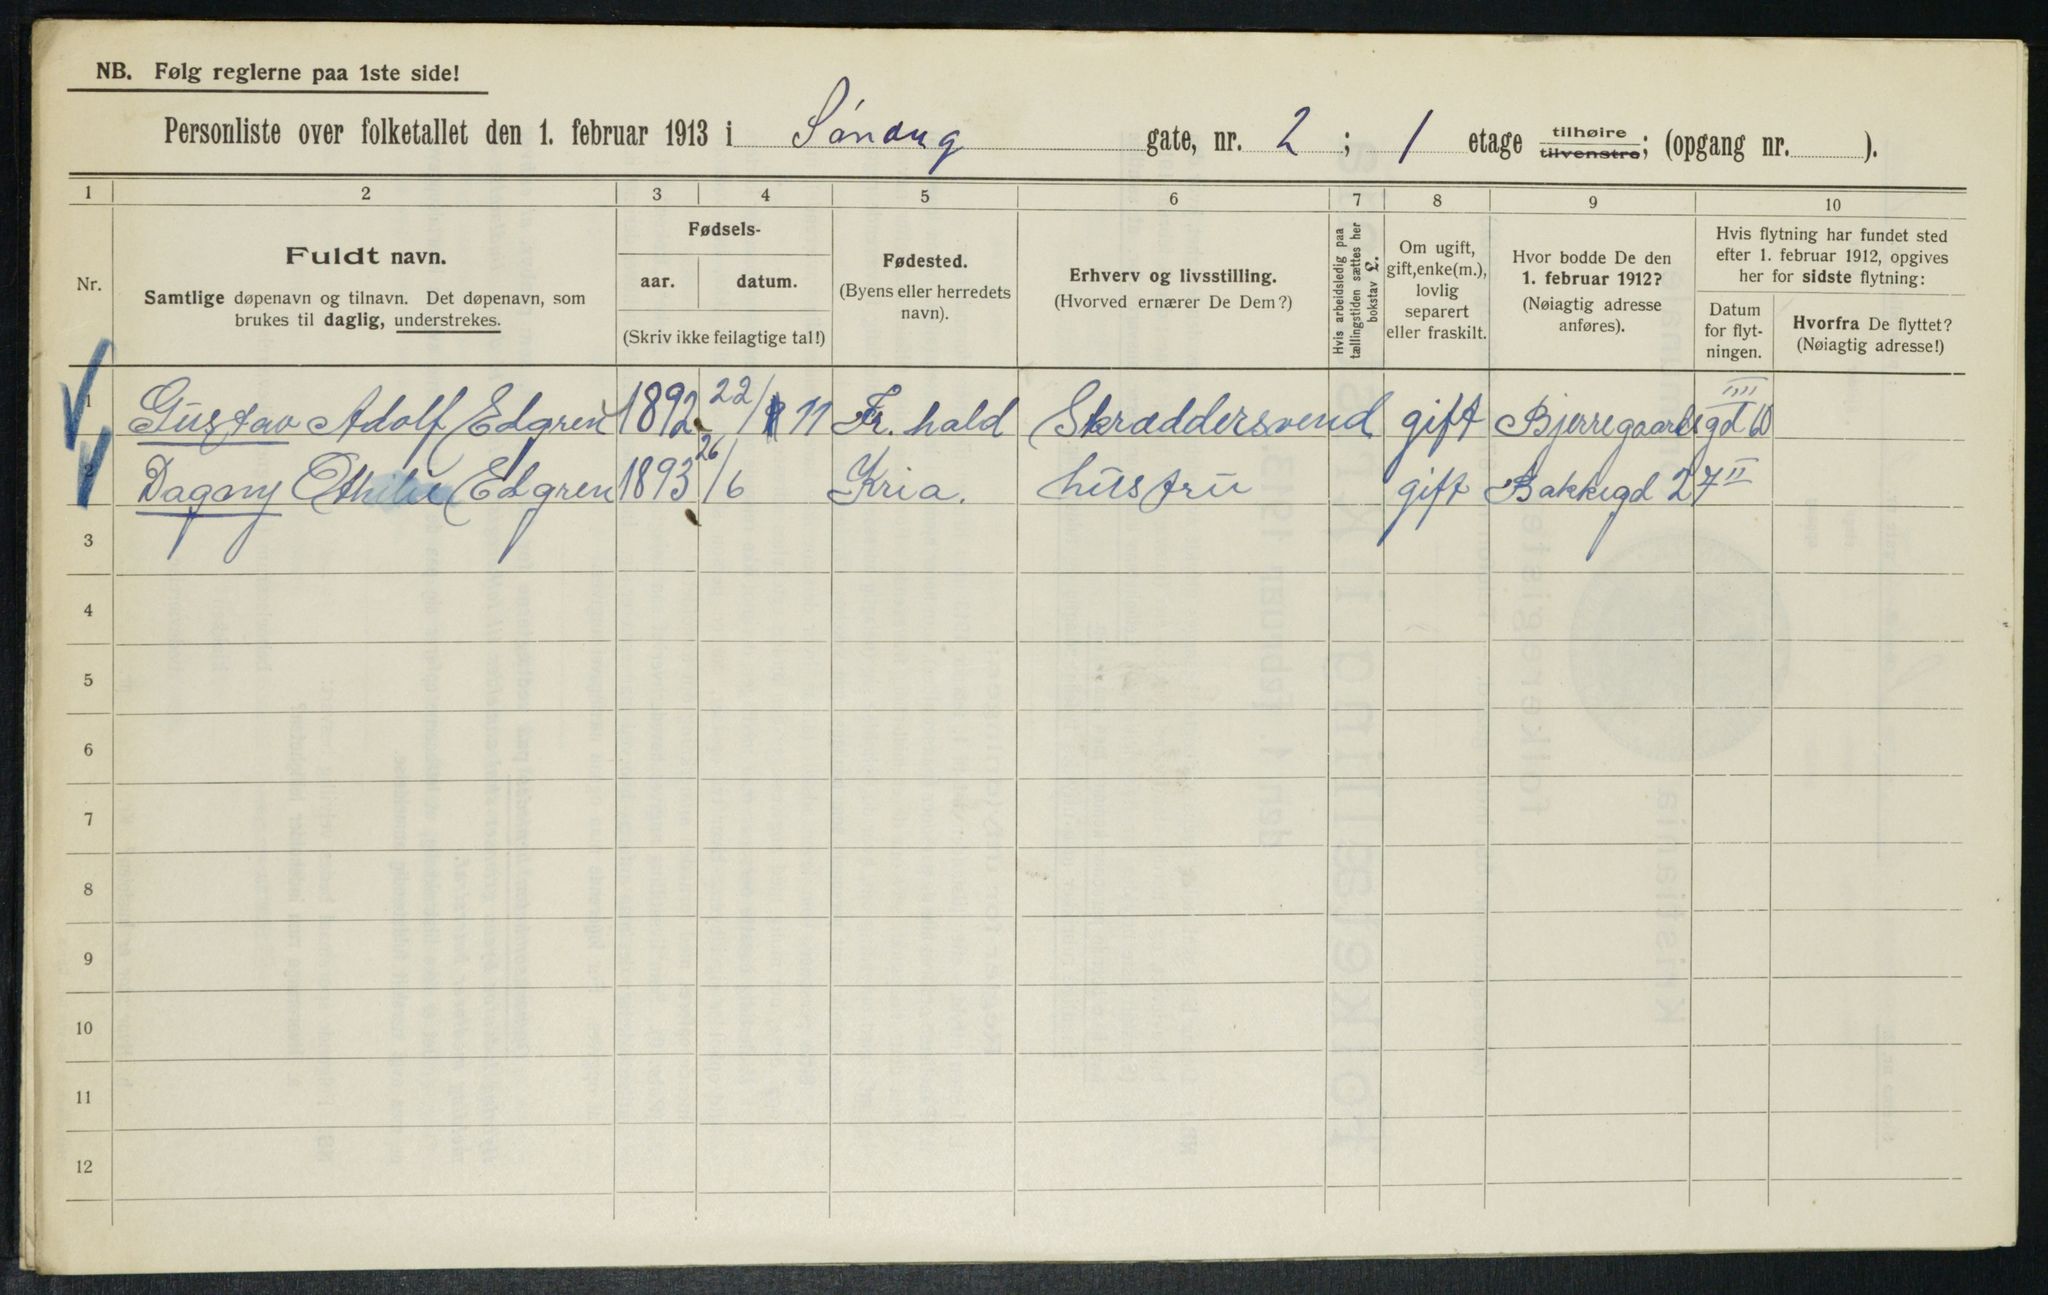 NB. Følg reglerne paa 1ste side!
Personliste over folketallet den 1. februar 1913 i Sónďug gate, nr. 2 ; 1 etage tilhøire tilvenstre; (opgang nr. ).
1 2 3 4 5 6 7 8 9 10
Nr.
Fuldt navn.
Samtlige døpenavn og tilnavn. Det døpenavn, som
brukes til daglig, understrekes.
Fødsels-
aar. datum.
(Skriv ikke feilagtige tal!)
Fødested.
(Byens eller herredets
navn).
Erhverv og livsstilling.
(Hvorved ernærer De Dem?)
Hvis arbeidsledig paa
tællingstiden sættes her
bokstav £.
Om ugift,
gift,enke(m.),
lovlig
separert
eller fraskilt.
Hvor bodde De den
1. februar 1912?
(Nøiagtig adresse
anføres).
Hvis flytning har fundet sted
efter 1. februar 1912, opgives
her for sidste flytning:
Datum
for flyt-
ningen.
Hvorfra De flyttet?
(Nøiagtig adresse!)
1 Gustav Adolf Edgren 1892 22/11 Fr. hald Skræddersvend gift Bjerregaardsgd 60 IIII
2 Dagny Othilie Edgren 1893 26/6 Kria. hustru gift Bakkegd 27 II
3
4
5
6
7
8
9
10
11
12